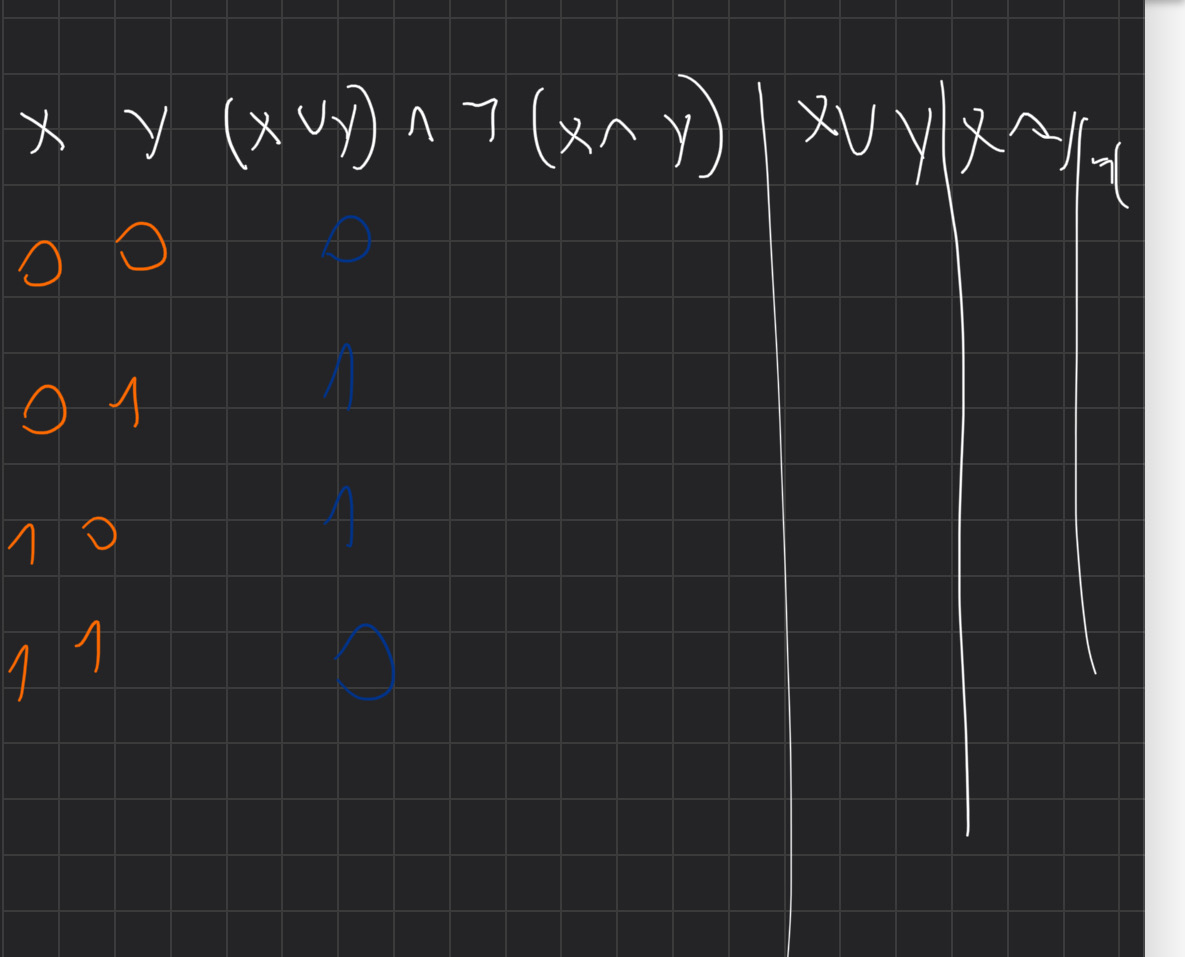 x y (x ∨ y) ∧ ¬ (x ∧ y) | x ∨ y | x ∧ y | ¬(
0 0 0
0 1 1
1 0 1
1 1 0